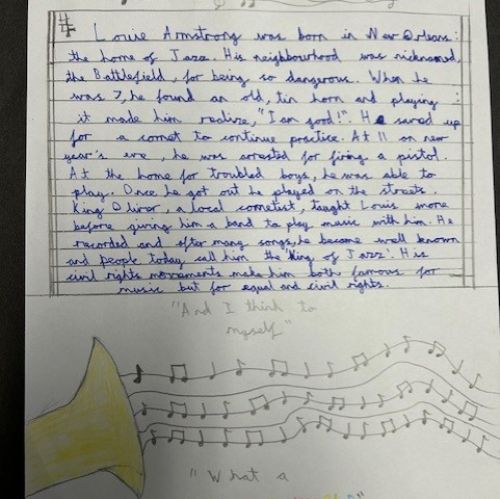 Louie Armstrong was born in New Orleans:
the home of Jazz. His neighbourhood was nicknamed,
the Battlefield, for being so dangerous. When he
was 7, he found an old, tin horn and playing
it made him realize, "I am good!". He saved up
for a cornet to continue practice. At 11 on new
year's eve, he was arrested for firing a pistol.
At the home for troubled boys, he was able to
play. Once he got out he played on the streets.
King Oliver, a local cornetist, taught Louis more
before giving him a band to play music with him. He
recorded and after many songs, he became well known
and people today call him the 'King of Jazz'. His
civil rights movements make him both famous for
music but for equal and civil rights.
"And I think to
myself"
"What a